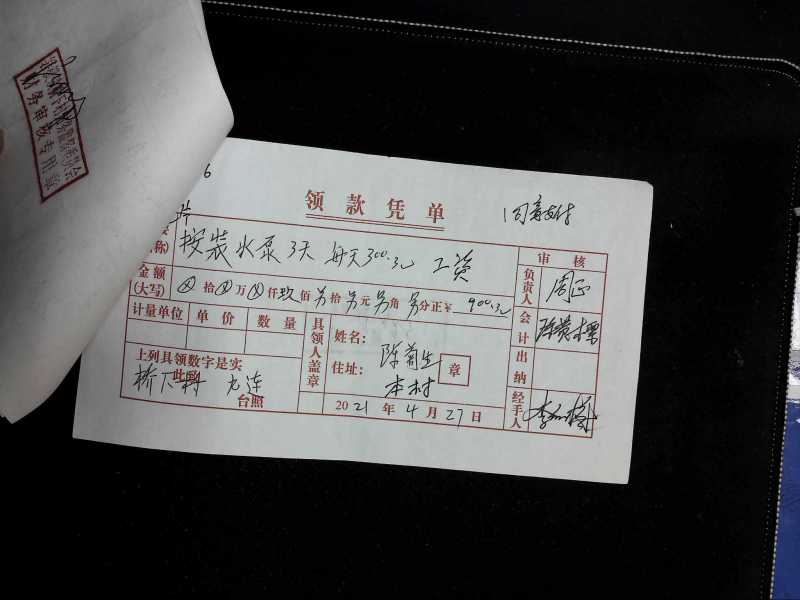 财务审核专用章
6
领款凭单
同意支付
按装水泵3天 每天300.元 工资
金额
(大写) 拾 万 仟 玖 佰 另 拾 另 元 另 角 另 分正¥ 900.元
计量单位 单价 数量
具领人盖章
姓名:
住址: 本村
章
上列具领数字是实
此照
桥下村
台照
2021年4月27日
审核
负责人 周正
会计
出纳
经手人